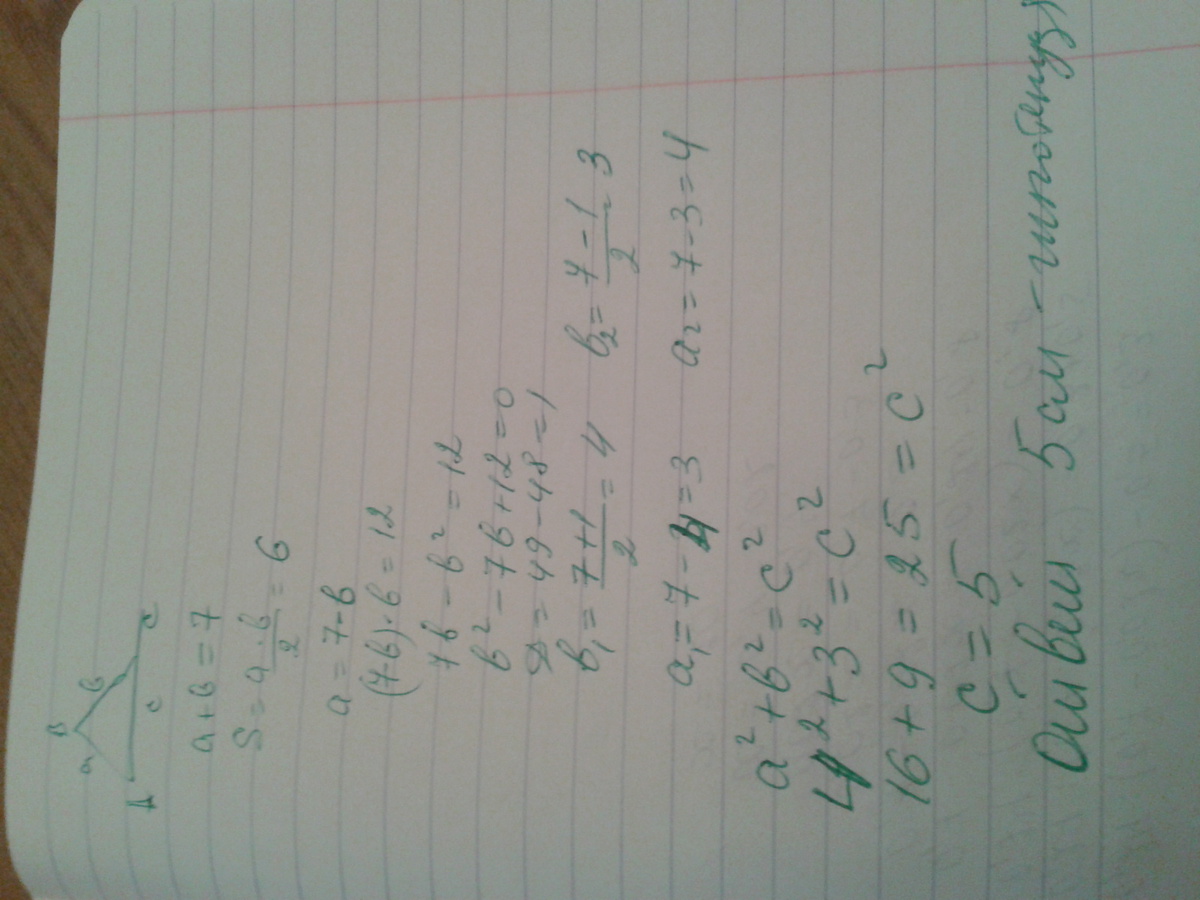 B
a в
A c C
a+в=7
S=a·в/2=6
a=7-в
(7-в)·в=12
7в-в²=12
в²-7в+12=0
D=49-48=1
в₁=7+1/2=4 в₂=7-1/2=3
a₁=7-4=3 a₂=7-3=4
a²+в²=c²
4²+3²=c²
16+9=25=c²
c=5
Ответ 5см-гипотенуза